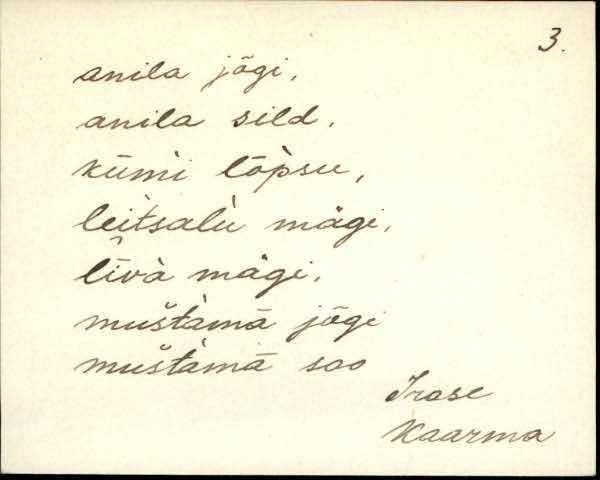 3.
anila jõgi,
anila sild,
kümi lõpsu,
leitsalu mägi,
līvà mägi,
muštàmā jõgi
muštàmā soo
Irase
Kaarma